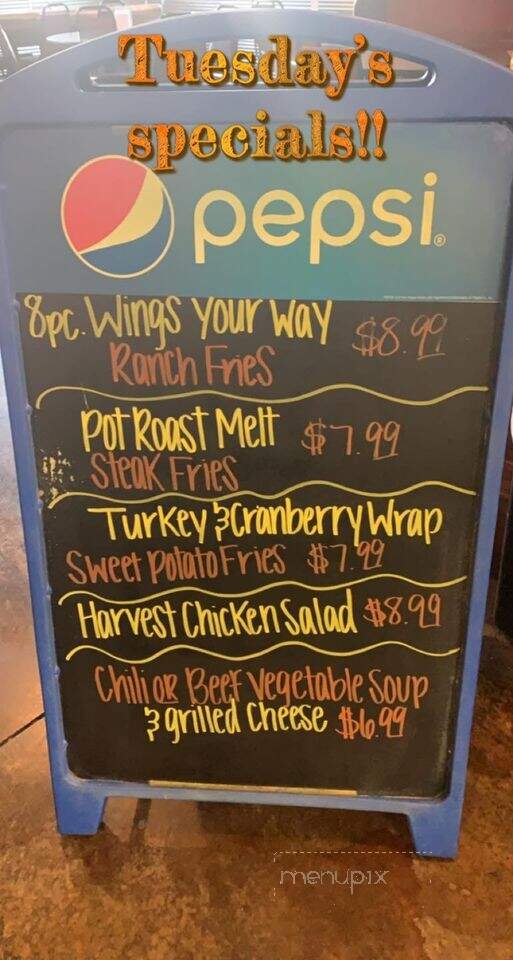 Tuesday's
specials!!
pepsi®
8pc. Wings Your Way $8.99
Ranch Fries
Pot Roast Melt $7.99
Steak Fries
Turkey & Cranberry Wrap
Sweet Potato Fries $7.99
Harvest Chicken Salad $8.99
Chili or Beef Vegetable Soup
& grilled Cheese $6.99
menupix